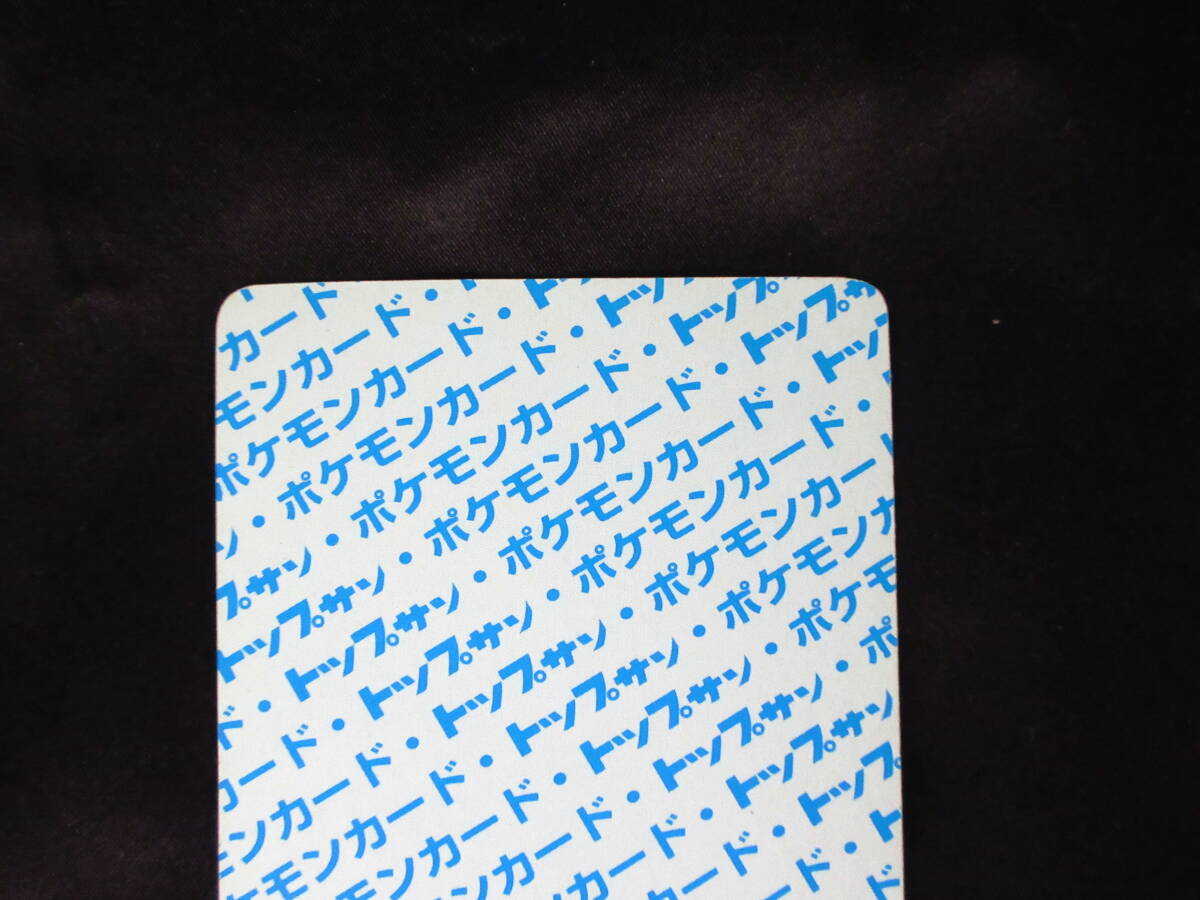 カード
モンカード・ト
ポケモンカード・トッ
ン・ポケモンカード・トップ
プサン・ポケモンカード・トップ
トップサン・ポケモンカード・トップサ
ド・トップサン・ポケモンカード・トッ
カード・トップサン・ポケモンカード・
モンカード・トップサン・ポケモンカード
ポケモンカード・トップサン・ポケモンカ
モンカード・トップサン・ポケモ
ンカード・トップサン・ポ
カード・トップサン
ード・トップ
ド・ト